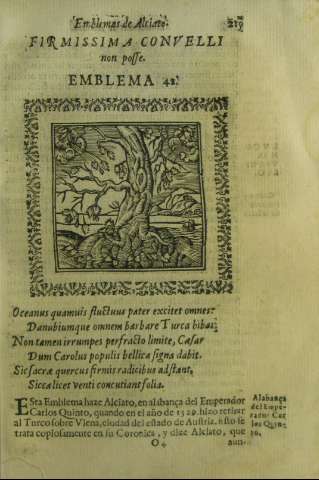 Emblemas de Alciato. 219
FIRMISSIMA CONVELLI
non posse.
EMBLEMA 42.
Oceanus quamuis fluctuus pater excitet omnes:
Danubiumque omnem barbare Turca bibas:
Non tamen irrumpes perfracto limite, Cæsar
Dum Carolus populis bellica signa dabit.
Sic sacræ quercus firmis radicibus adstant,
Sicca licet venti concutiant folia.
ESta Emblema haze Alciato, en alabança del Emperador
Carlos Quinto, quando en el año de 1529. hizo retirar
al Turco sobre Viena, ciudad del estado de Austria. esto se
trata copiosamente en su Coronica, y dize Alciato, que
Alabança
del Empe-
rador Car
los Quin-
to.
O 4 aun-